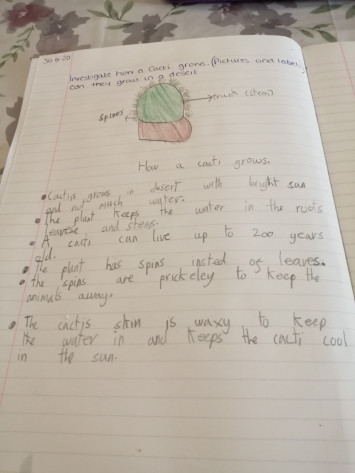 30.6.20
Investigate how a Cacti grows. (Pictures and label)
can they grow in a desert
spines
trunk (stem)
How a cacti grows.
• Cactis grows in desert with bright sun
and not much water.
• The plant keeps the water in the roots
leaves and stems.
• A cacti can live up to 200 years
old.
• The plant has spins insted of leaves.
• the spins are prickeley to keep the
animals away.
• The cactis skin is waxy to keep
the water in and keeps the cacti cool
in the sun.